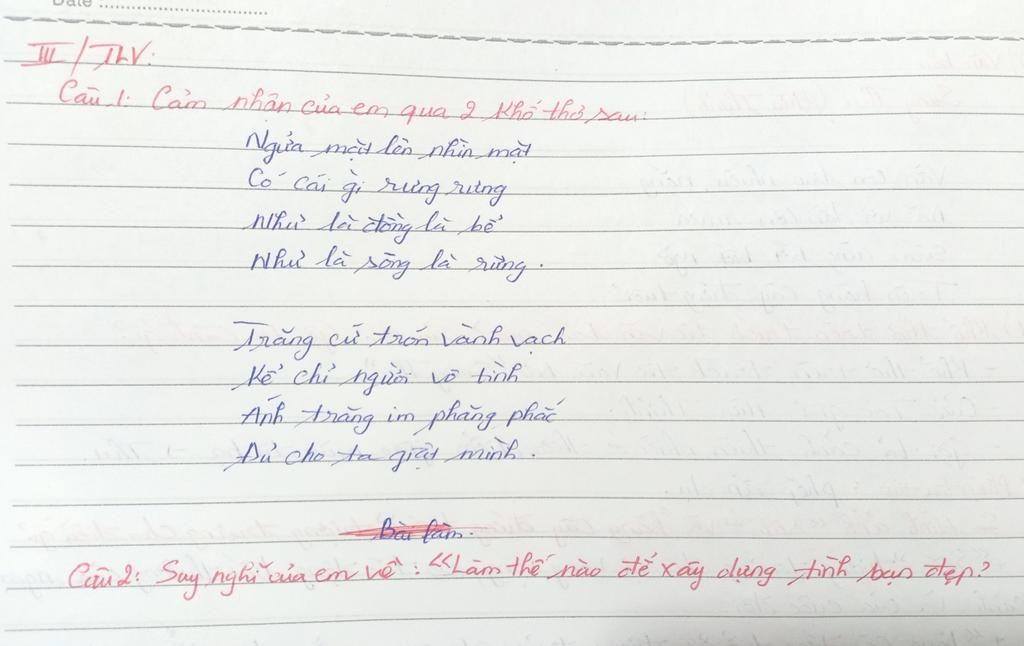 Date ................................
III / TLV:
Câu 1: Cảm nhận của em qua 2 khổ thơ sau:
Ngửa mặt lên nhìn mặt
Có cái gì rưng rưng
Như là đồng là bể
Như là sông là rừng.
Trăng cứ tròn vành vạch
Kể chi người vô tình
Ánh trăng im phăng phắc
Đủ cho ta giật mình.
Bài làm.
Câu 2: Suy nghĩ của em về: "Làm thế nào để xây dựng tình bạn đẹp?